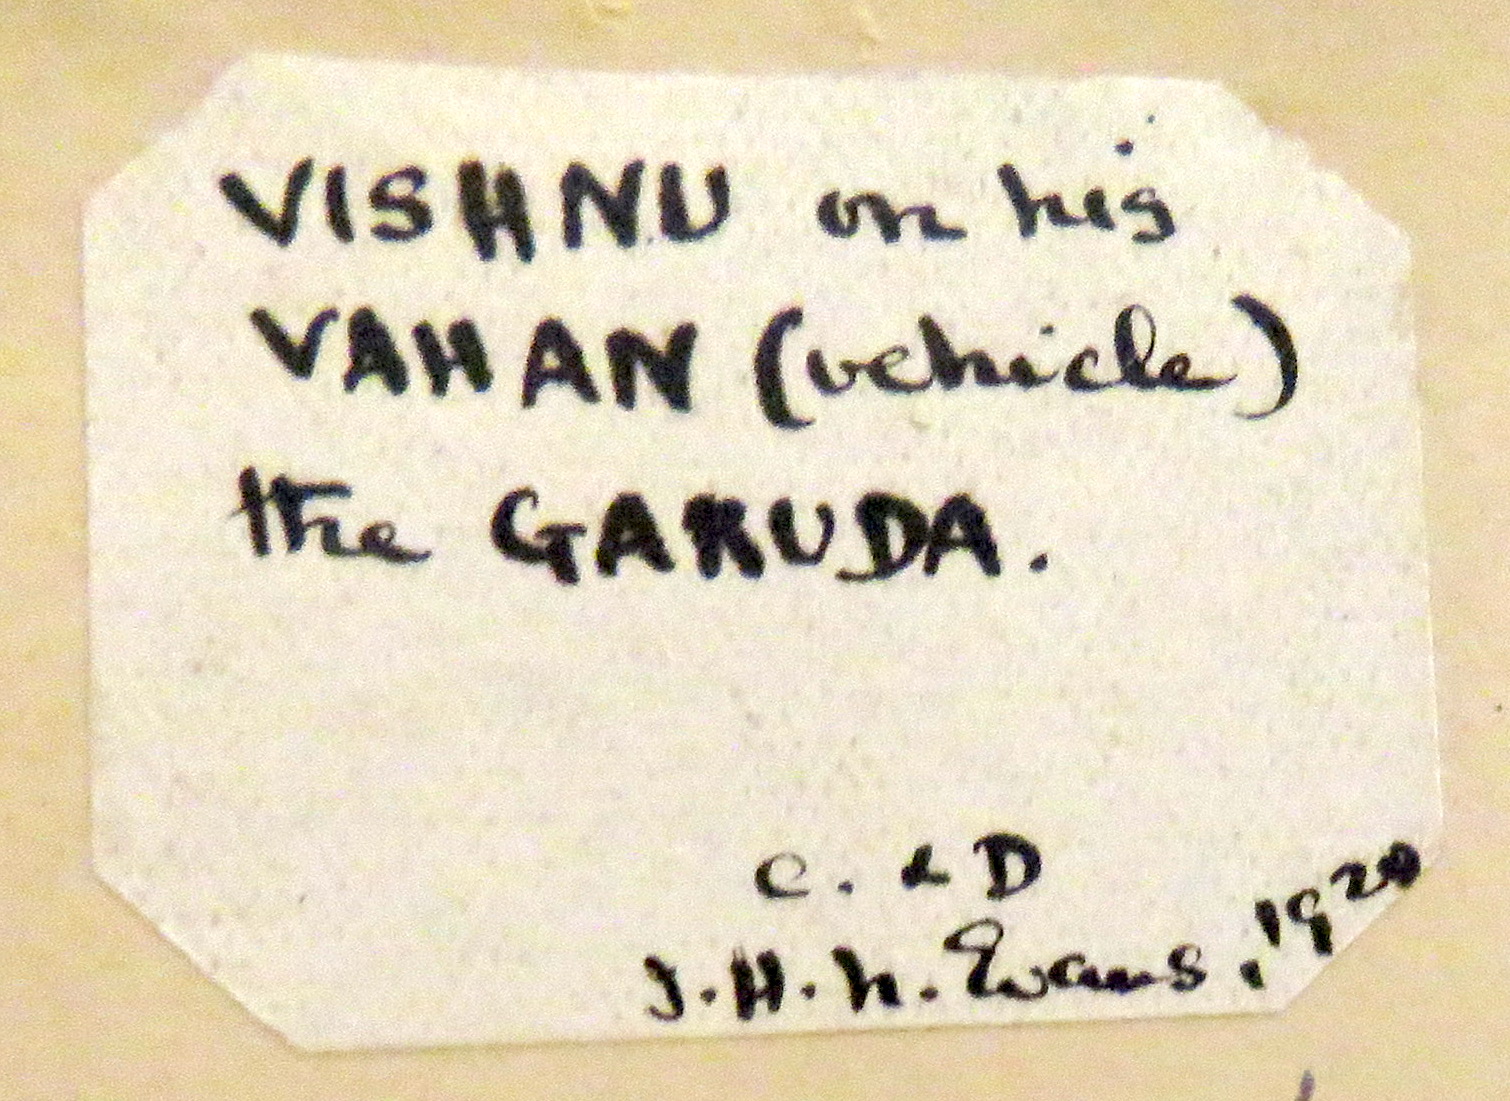 VISHNU on his
VAHAN (vehicle)
the GARUDA.
C. & D
J.H.N. Evans, 1920